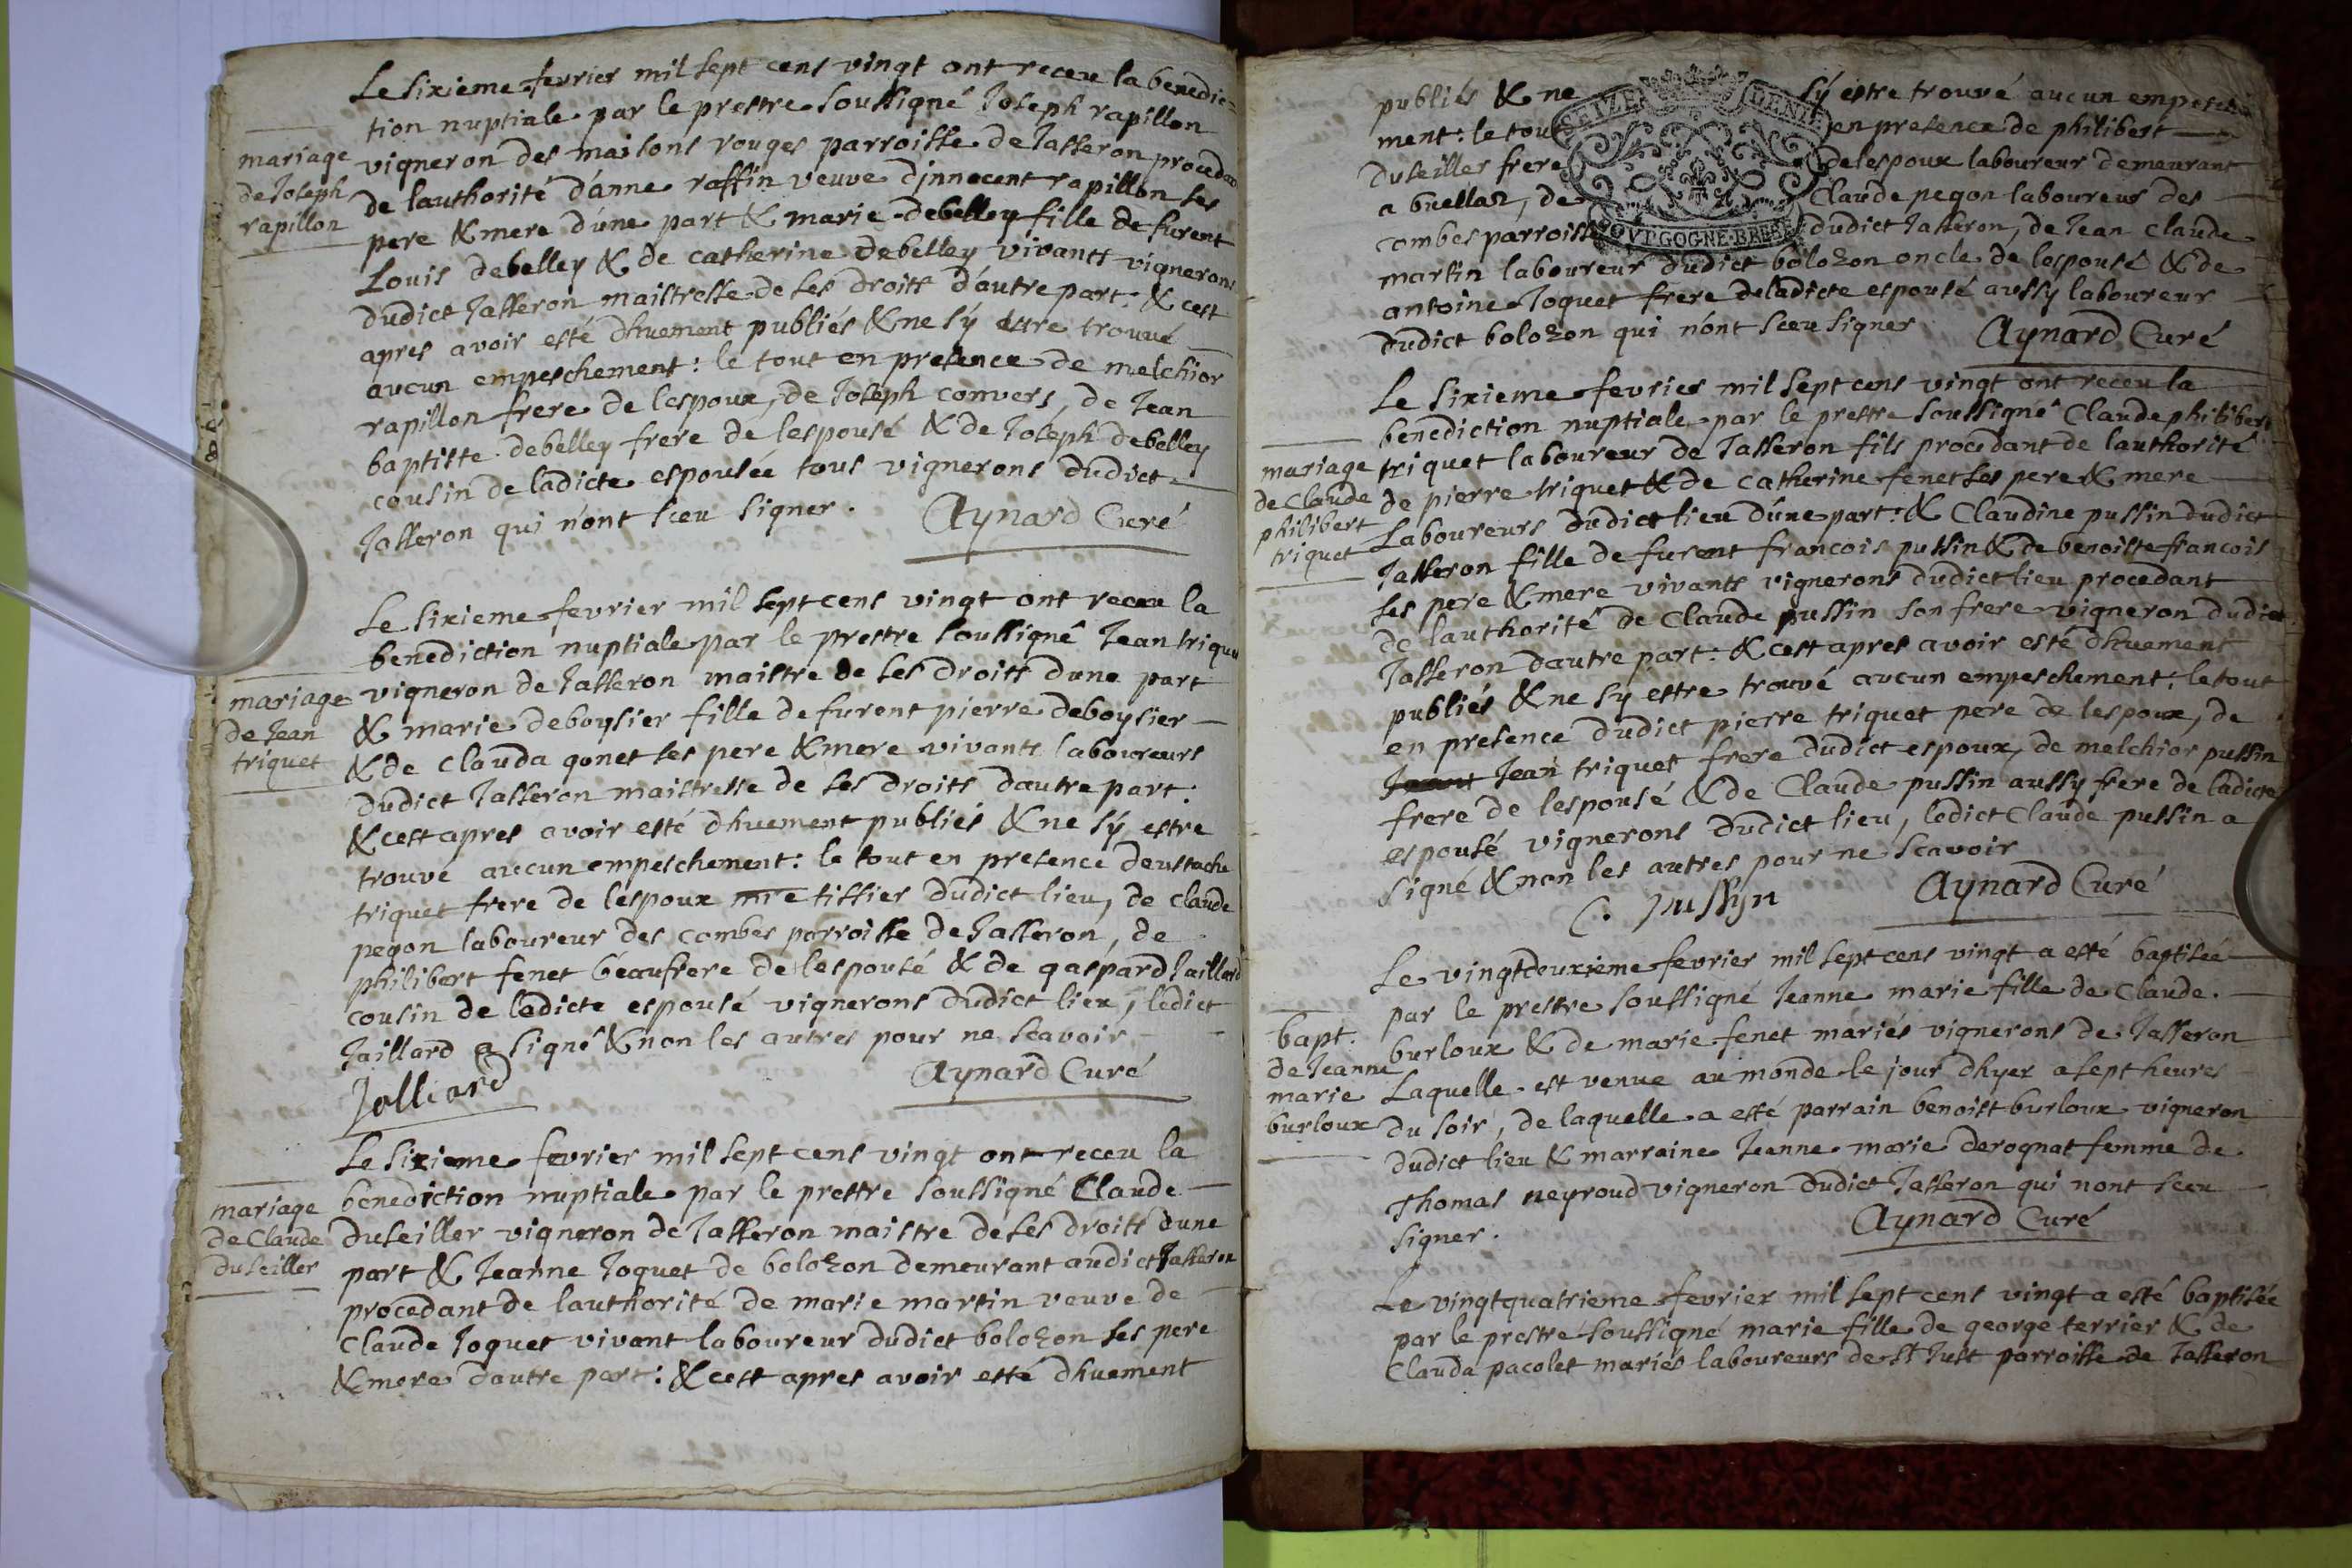 Le sixieme fevrier mil sept cens vingt ont receu la benedic=
tion nuptiale par le prestre soussigné Joseph rapillon
mariage
de Joseph
rapillon
vigneron des maisons rouges parroisse de Jasseron procedant
de lauthorité d'anne raffin veuve d'innocent rapillon ses
pere & mere d'une part & marie debelley fille de furent
Louis debelley & de catherine debelley vivants vignerons
dudict Jasseron maistresse de ses droits d'autre part: & cest
apres avoir esté dhuement publiés & ne sÿ estre trouvé
aucun empeschement: le tout en presence de melchior
rapillon frere de lespoux, de Joseph convers, de Jean
baptiste debelley frere de lespousé & de Joseph debelley
cousin de ladicte espousée tous vignerons dudict
Jasseron qui n'ont sceu signer.
Aynard Curé
Le sixieme fevrier mil sept cens vingt ont receu la
benediction nuptiale par le prestre soussigné Jean triquet
mariage
de Jean
triquet
vigneron de Jasseron maistre de ses droits dune part
& marie deboysier fille de furent pierre deboysier
& de clauda gonet ses pere & mere vivants laboureurs
dudict Jasseron maistresse de ses droits dautre part:
& cest apres avoir esté dhuement publiés & ne sÿ estre
trouvé aucun empeschement: le tout en presence deustache
triquet frere de lespoux tissier dudict lieu, de claude
pegon laboureur des combes parroisse de Jasseron, de
philibert fenet beaufrere de lespousé & de gaspard Jaillard
cousin de ladicte espousé vignerons dudict lieu, ledict
Jaillard a signé & non les autres pour ne scavoir
Jalliard
Aynard Curé
Le sixieme fevrier mil sept cens vingt ont receu la
mariage
de Claude
duseiller
benediction nuptiale par le prestre soussigné Claude
duseiller vigneron de Jasseron maistre de ses droits dune
part & Jeanne Joquet de bolozon demeurant audict Jasseron
procedant de lauthorité de marie martin veuve de
Claude Joquet vivant laboureur dudict bolozon ses pere
& mere dautre part: & cest apres avoir esté dhuement
publiés & ne sÿ estre trouvé aucun empesche
ment: le tout en presence de philibert
duseiller frere de lespoux laboureur demeurant
a buellas, de Claude pegon laboureur des
combes parroisse dudict Jasseron, de Jean Claude
SEIZE DENIE
BOVRGOGNE·BRESSE
martin laboureur dudict bolozon oncle de lespousé & de
antoine Joquet frere deladicte espousé aussy laboureur
dudict bolozon qui n'ont sceu signer
Aynard Curé
Le sixieme fevrier mil sept cens vingt ont receu la
benediction nuptiale par le prestre soussigné Claude philibert
mariage
de Claude
philibert
triquet
triquet laboureur de Jasseron fils procedant de lauthorité
de pierre triquet & de catherine fenet ses pere & mere
Laboureurs dudict lieu d'une part: & Claudine pussin dudict
Jasseron fille de furent francois pussin & de benoiste francois
ses pere & mere vivants vignerons dudict lieu procedant
de lauthorité de Claude pussin son frere vigneron dudict
Jasseron dautre part: & cest apres avoir esté dhuement
publiés & ne sy estre trouvé aucun empeschement: le tout
en presence dudict pierre triquet pere de lespoux, de
Jean triquet frere dudict espoux, de melchior pussin
frere de lespousé & de Claude pussin aussy frere de ladicte
espousé vignerons dudict lieu, ledict Claude pussin a
signé & non les autres pour ne scavoir
C. pussyn
Aynard Curé
Le vingtdeuxieme fevrier mil sept cens vingt a esté baptisée
par le prestre soussigné Jeanne marie fille de Claude
bapt.
de Jeanne
marie
burloux
burloux & de marie fenet mariés vignerons de Jasseron
Laquelle est venue au monde le jour dhyer a sept heures
du soir, de laquelle a esté parrain benoist burloux vigneron
dudict lieu & marraine Jeanne marie derognat femme de
Thomas neyroud vigneron dudict Jasseron qui nont sceu
signer.
Aynard Curé
Le vingtquatrieme fevrier mil sept cent vingt a esté baptisée
par le prestre soussigné marie fille de george terrier & de
Clauda pacolet mariés laboureurs de st Just parroisse de Jasseron